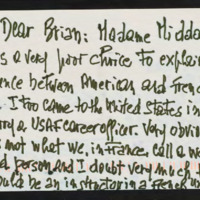 Dear Brian: Madame Midda
s a very poor choice to explain
ence between American and French
. I too came to the United States in
rry a USAF career officer. Very obvio
s not what we, in France, call a we
d person and I doubt very much t
ould be an instructor in a French u